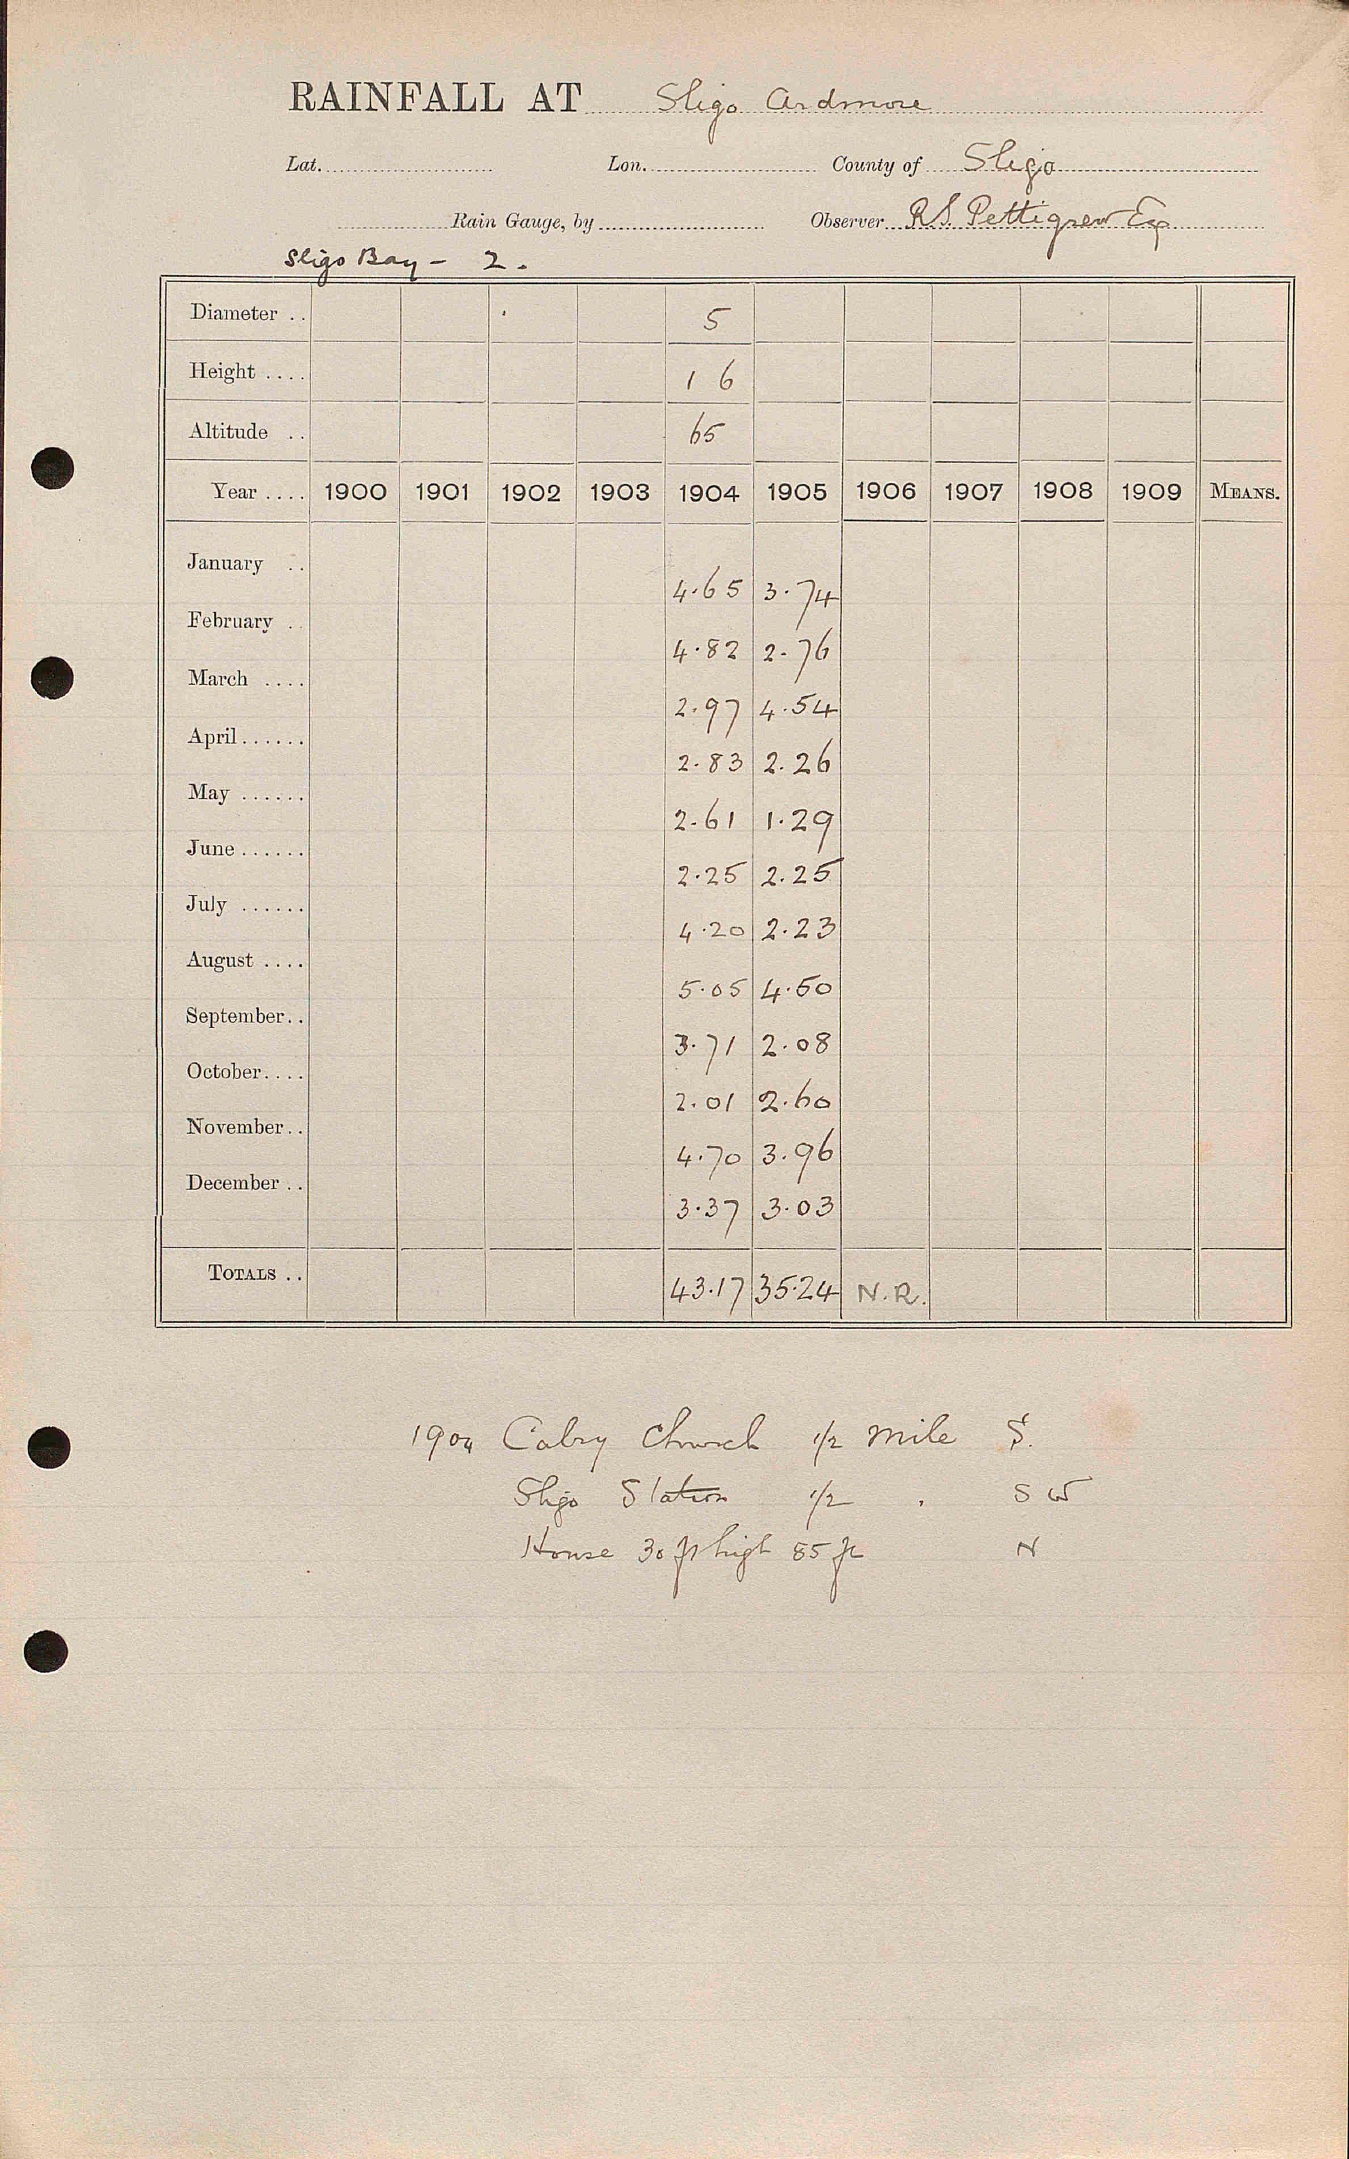 RAINFALL AT Sligo Ardmore
Lat. Lon. County of Sligo
Rain Gauge, by Observer R.S. Pettigrew Esq
Sligo Bay - 2.
Diameter .. 5
Height .... 1 6
Altitude .. 65
Year .... 1900 1901 1902 1903 1904 1905 1906 1907 1908 1909 MEANS.
January .. 4.65 3.74
February .. 4.82 2.76
March .... 2.97 4.54
April...... 2.83 2.26
May ...... 2.61 1.29
June...... 2.25 2.25
July ...... 4.20 2.23
August .... 5.05 4.50
September.. 3.71 2.08
October.... 2.01 2.60
November.. 4.70 3.96
December .. 3.37 3.03
TOTALS .. 43.17 35.24 N.R.
1904 Calry Church 1/2 mile S.
Sligo Station 1/2 . SW
House 30 ft high 85 ft N